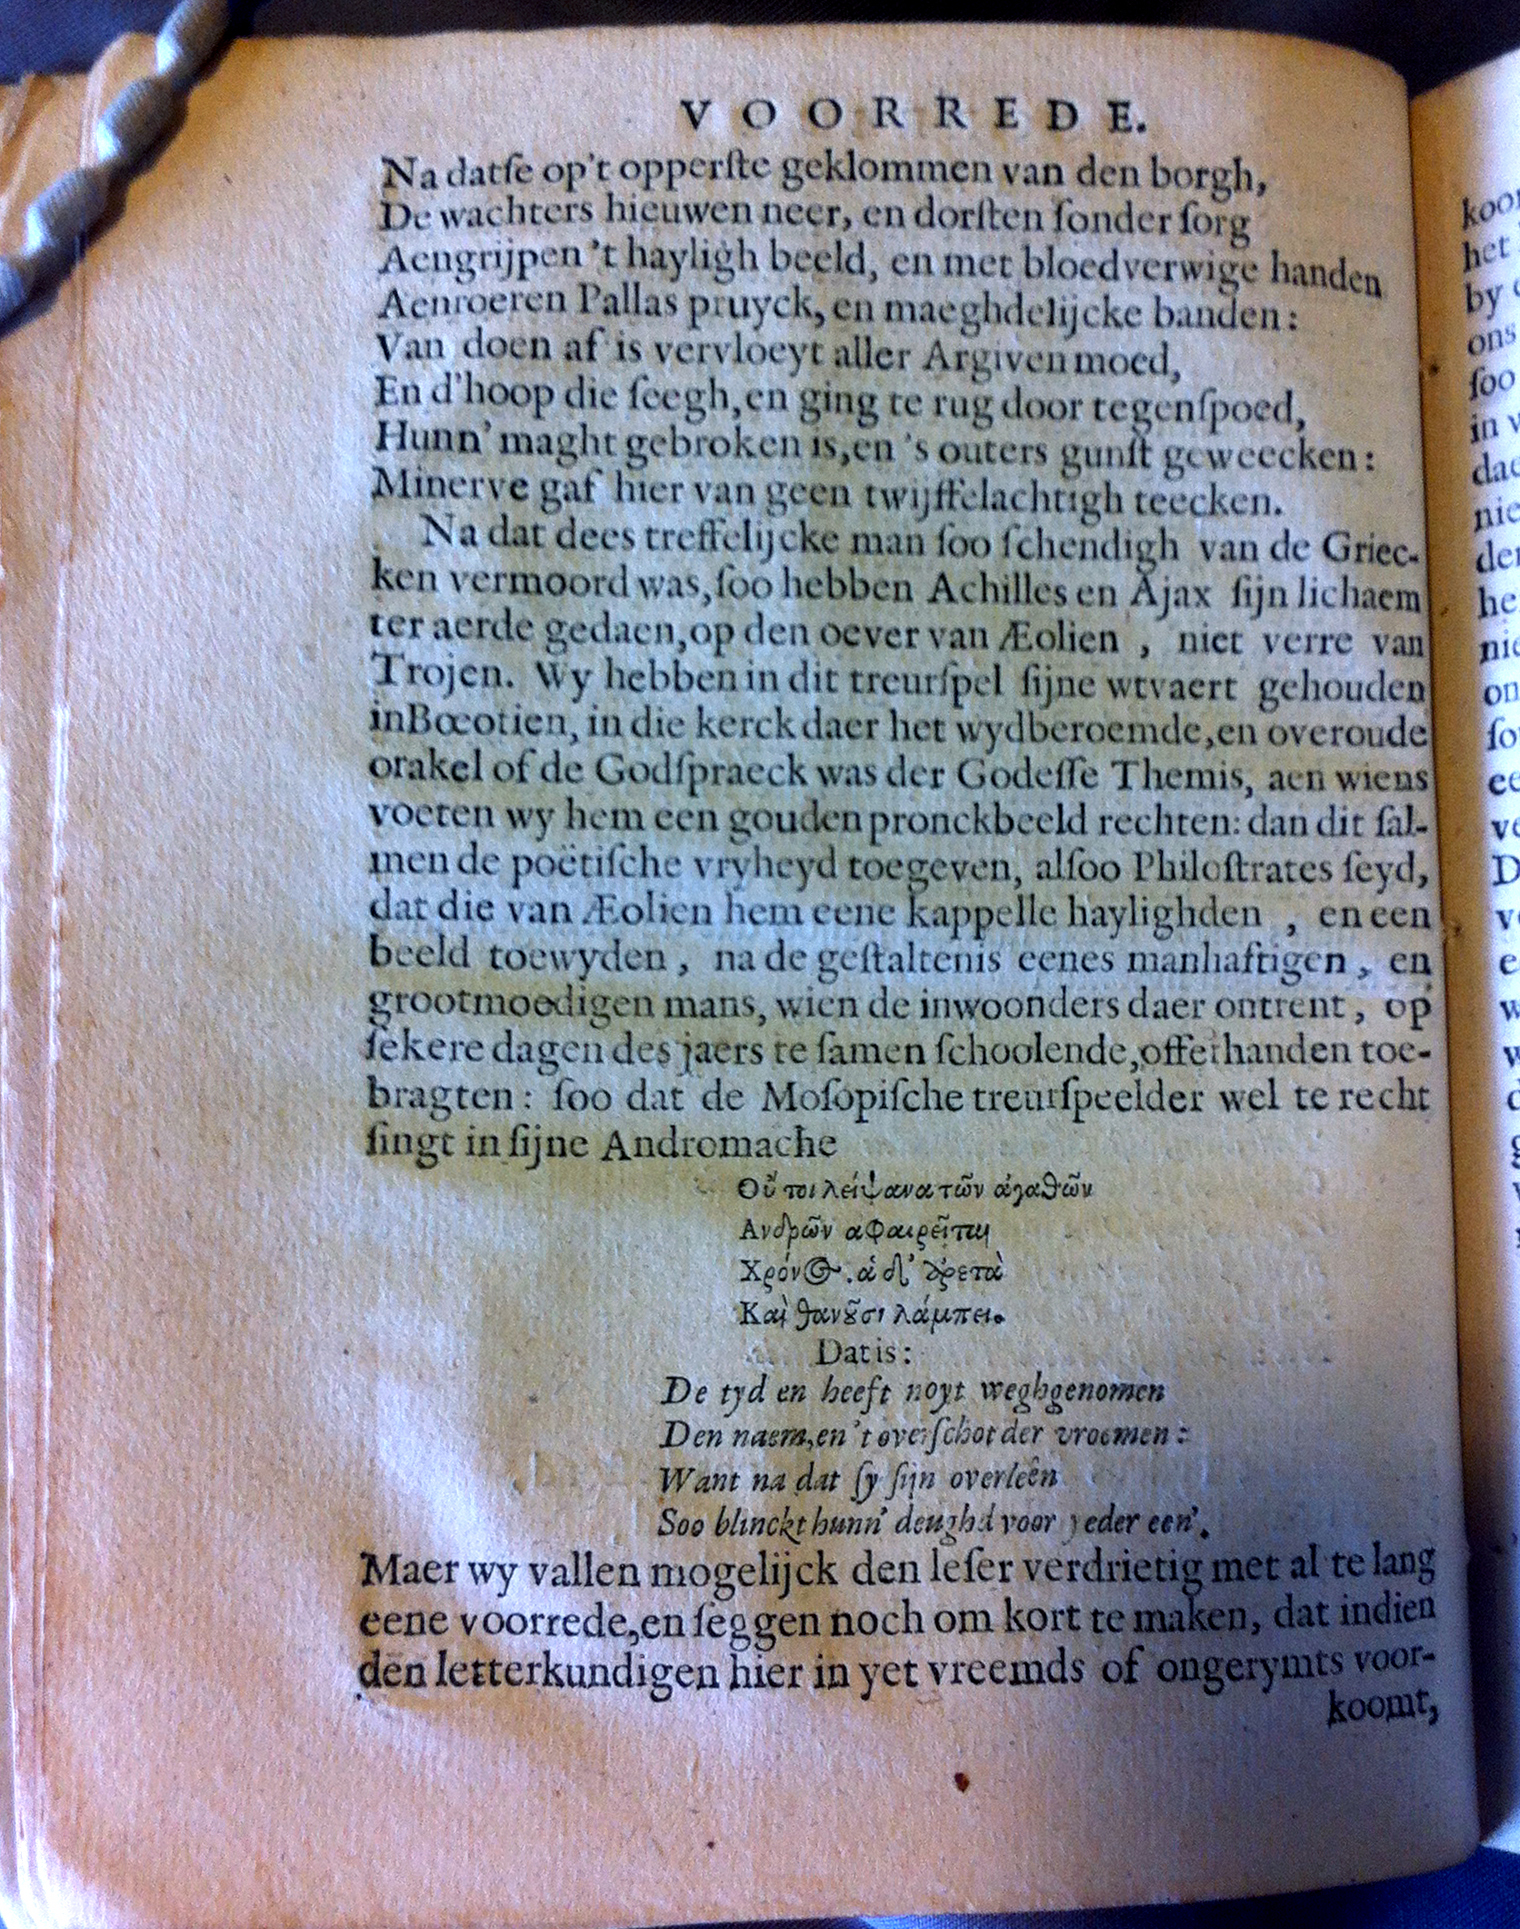 VOORREDE.
Na datſe op't opperſte geklommen van den borgh,
De wachters hieuwen neer, en dorſten ſonder ſorg
Aengrijpen 't hayligh beeld, en met bloedverwige handen
Aenroeren Pallas pruyck, en maeghdelijcke banden:
Van doen af is vervloeyt aller Argiven moed,
En d'hoop die ſeegh, en ging te rug door tegenſpoed,
Hunn' maght gebroken is, en 's outers gunſt geweecken:
Minerve gaf hier van geen twijffelachtigh teecken.
Na dat dees treffelijcke man ſoo ſchendigh van de Griec-
ken vermoord was, ſoo hebben Achilles en Ajax ſijn lichaem
ter aerde gedaen, op den oever van Æolien , niet verre van
Trojen. Wy hebben in dit treurſpel ſijne wtvaert gehouden
in Bœotien, in die kerck daer het wydberoemde, en overoude
orakel of de Godſpraeck was der Godeſſe Themis, aen wiens
voeten wy hem een gouden pronckbeeld rechten: dan dit ſal-
men de poëtiſche vryheyd toegeven, alſoo Philoſtrates ſeyd,
dat die van Æolien hem eene kappelle haylighden , en een
beeld toewyden , na de geſtaltenis eenes manhaftigen , en
grootmoedigen mans, wien de inwoonders daer ontrent , op
ſekere dagen des jaers te ſamen ſchoolende, offerhanden toe-
bragten : ſoo dat de Moſopiſche treurſpeelder wel te recht
ſingt in ſijne Andromache
Οὔ τοι λείψανα τῶν ἀγαθῶν
Ανδρῶν αφαιρεῖται
Χρόνος. ἁ δ' ἀρετὰ
Καὶ θανοῦσι λάμπει.
Dat is:
De tyd en heeft noyt weghgenomen
Den naem, en 't overſchot der vroomen :
Want na dat ſy ſijn overleên
Soo blinckt hunn' deughd voor yeder een'.
Maer wy vallen mogelijck den leſer verdrietig met al te lang
eene voorrede, en ſeggen noch om kort te maken, dat indien
den letterkundigen hier in yet vreemds of ongerymts voor-
koomt,